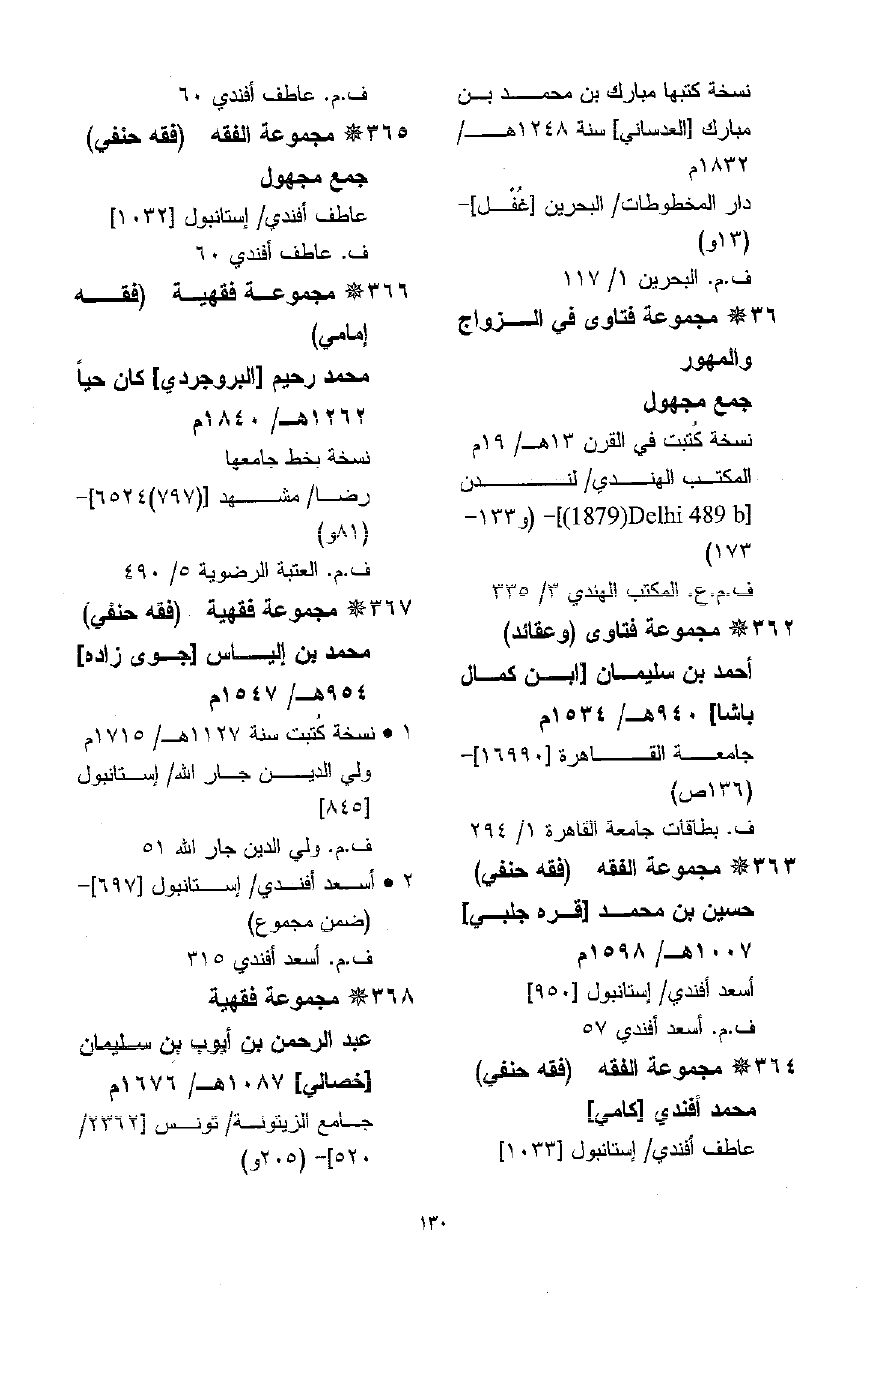 نسخة كتبها مبارك بن محمد بن
مبارك [العدساني] سنة ١٢٤٨هـ/
١٨٣٢م
دار المخطوطات/ البحرين [غُفْل]-
(١٣و)
ف.م. البحرين ١/ ١١٧
٣٦ ❋ مجموعة فتاوى في الزواج
والمهور
جمع مجهول
نسخة كُتبت في القرن ١٣هـ/ ١٩م
المكتب الهندي/ لندن
[Delhi 489 b(1879)]- (و١٣٣-
١٧٣)
ف.م.ع. المكتب الهندي ٣/ ٣٣٥
٣٦٢ ❋ مجموعة فتاوى (وعقائد)
أحمد بن سليمان [ابن كمال
باشا] ٩٤٠هـ/ ١٥٣٤م
جامعة القاهرة [١٦٩٩٠]-
(١٣٦ص)
ف. بطاقات جامعة القاهرة ١/ ٢٩٤
٣٦٣ ❋ مجموعة الفقه (فقه حنفي)
حسين بن محمد [قره جلبي]
١٠٠٧هـ/ ١٥٩٨م
أسعد أفندي/ إستانبول [٩٥٠]
ف.م. أسعد أفندي ٥٧
٣٦٤ ❋ مجموعة الفقه (فقه حنفي)
محمد أفندي [كامي]
عاطف أفندي/ إستانبول [١٠٣٣]
ف.م. عاطف أفندي ٦٠
٣٦٥ ❋ مجموعة الفقه (فقه حنفي)
جمع مجهول
عاطف أفندي/ إستانبول [١٠٣٢]
ف. عاطف أفندي ٦٠
٣٦٦ ❋ مجموعة فقهية (فقه
إمامي)
محمد رحيم [البروجردي] كان حياً
١٢٦٢هـ/ ١٨٤٠م
نسخة بخط جامعها
رضا/ مشهد [(٧٩٧)٦٥٢٤]-
(٨١و)
ف.م. العتبة الرضوية ٥/ ٤٩٠
٣٦٧ ❋ مجموعة فقهية (فقه حنفي)
محمد بن إلياس [جوى زاده]
٩٥٤هـ/ ١٥٤٧م
١ • نسخة كُتبت سنة ١١٢٧هـ/ ١٧١٥م
ولي الدين جار الله/ إستانبول
[٨٤٥]
ف.م. ولي الدين جار الله ٥١
٢ • أسعد أفندي/ إستانبول [٦٩٧]-
(ضمن مجموع)
ف.م. أسعد أفندي ٣١٥
٣٦٨ ❋ مجموعة فقهية
عبد الرحمن بن أيوب بن سليمان
[خصالي] ١٠٨٧هـ/ ١٦٧٦م
جامع الزيتونة/ تونس [٢٣٦٢/
٥٢٠]- (٢٠٥و)
١٣٠